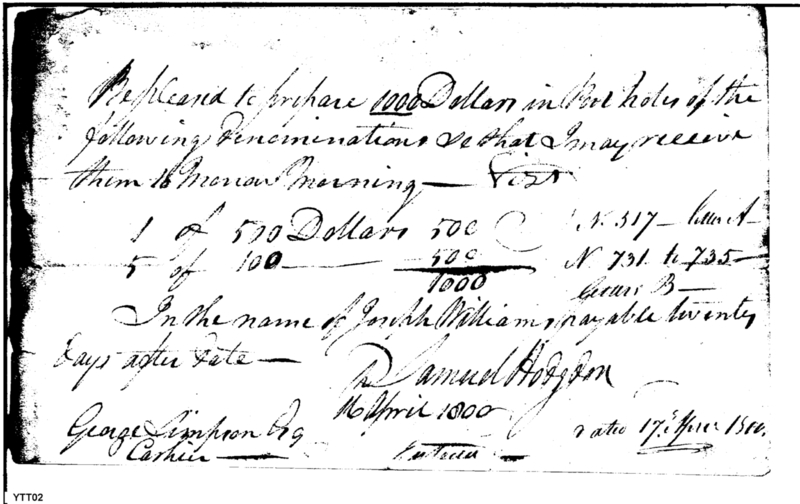 Be pleased to prepare 1000 Dollars in Post notes of the
following Denominations so that I may receive
them to Morrow Morning —
1 of 500 Dollars 500 N. 517 — Letter A
5 of 100 — 500 N 731 to 735 —
1000 Letter B —
In the name of Joseph Williams, payable twenty
Days after date —
Samuel Hodgdon
16 April 1800
George Simpson Esq
Cashier —
dated 17th April 1800.
YTT02